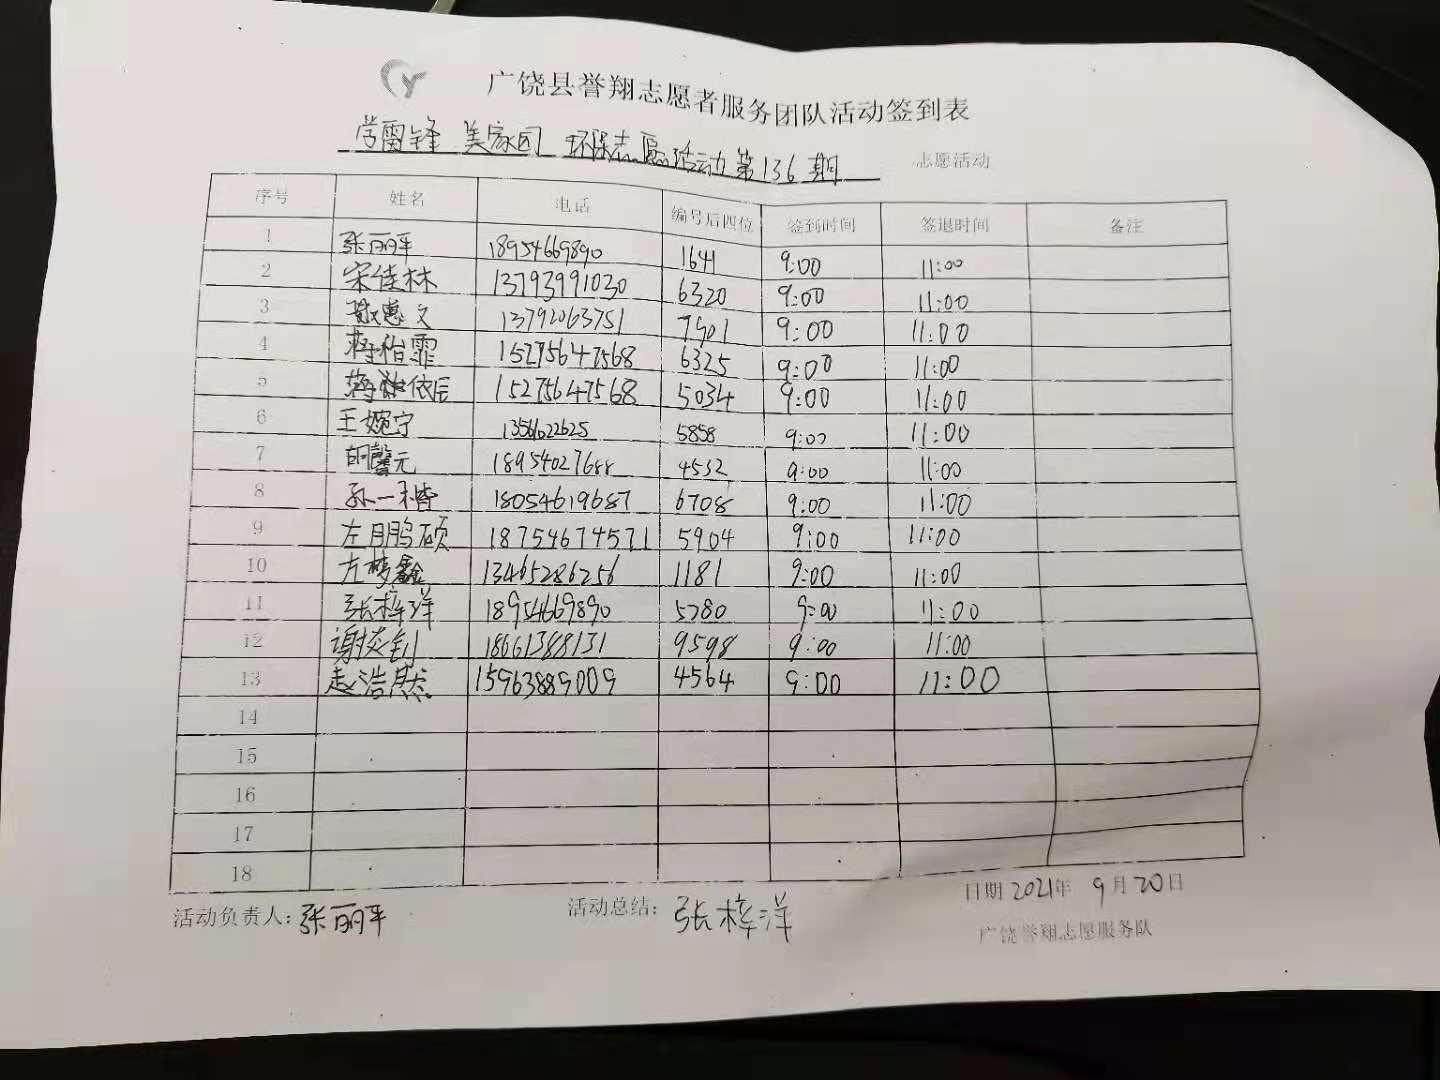 广饶县誉翔志愿者服务团队活动签到表
学雷锋 美家园 环保志愿活动第136期 志愿活动
序号 姓名 电话 编号后四位 签到时间 签退时间 备注
1 张丽平 18954669890 1641 9:00 11:00
2 宋佳林 13793991030 6320 9:00 11:00
3 惠文 13792063751 7901 9:00 11:00
4 怡霏 15275647568 6325 9:00 11:00
5 依辰 15275647568 5034 9:00 11:00
6 王婉宁 1356622625 5858 9:00 11:00
7 胡馨元 18954027688 4532 9:00 11:00
8 孙一楷 18054619687 6708 9:00 11:00
9 左鹏硕 18754674571 5904 9:00 11:00
10 左梦鑫 13465286256 1181 9:00 11:00
11 张梓洋 18954669890 5780 9:00 11:00
12 谢炎钊 18661388131 9598 9:00 11:00
13 赵浩然 15963889009 4564 9:00 11:00
14
15
16
17
18
活动负责人:张丽平 活动总结:张梓洋 日期2021年 9月20日
广饶誉翔志愿服务队